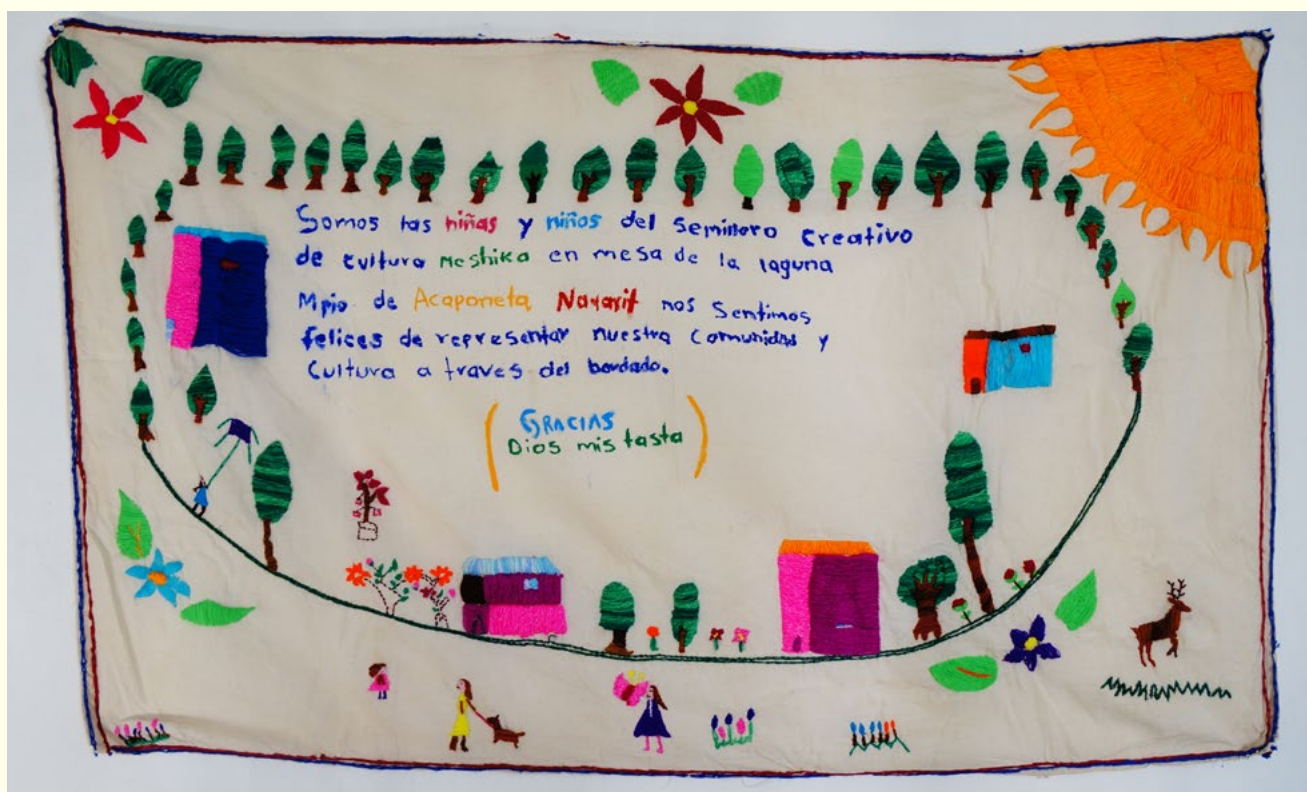 Somos las niñas y niños del semillero creativo
de cultura meshika en mesa de la laguna
Mpio de Acaponeta, Nayarit nos sentimos
felices de representar nuestra comunidad y
cultura a traves del bordado.
GRACIAS
Dios mis tasta